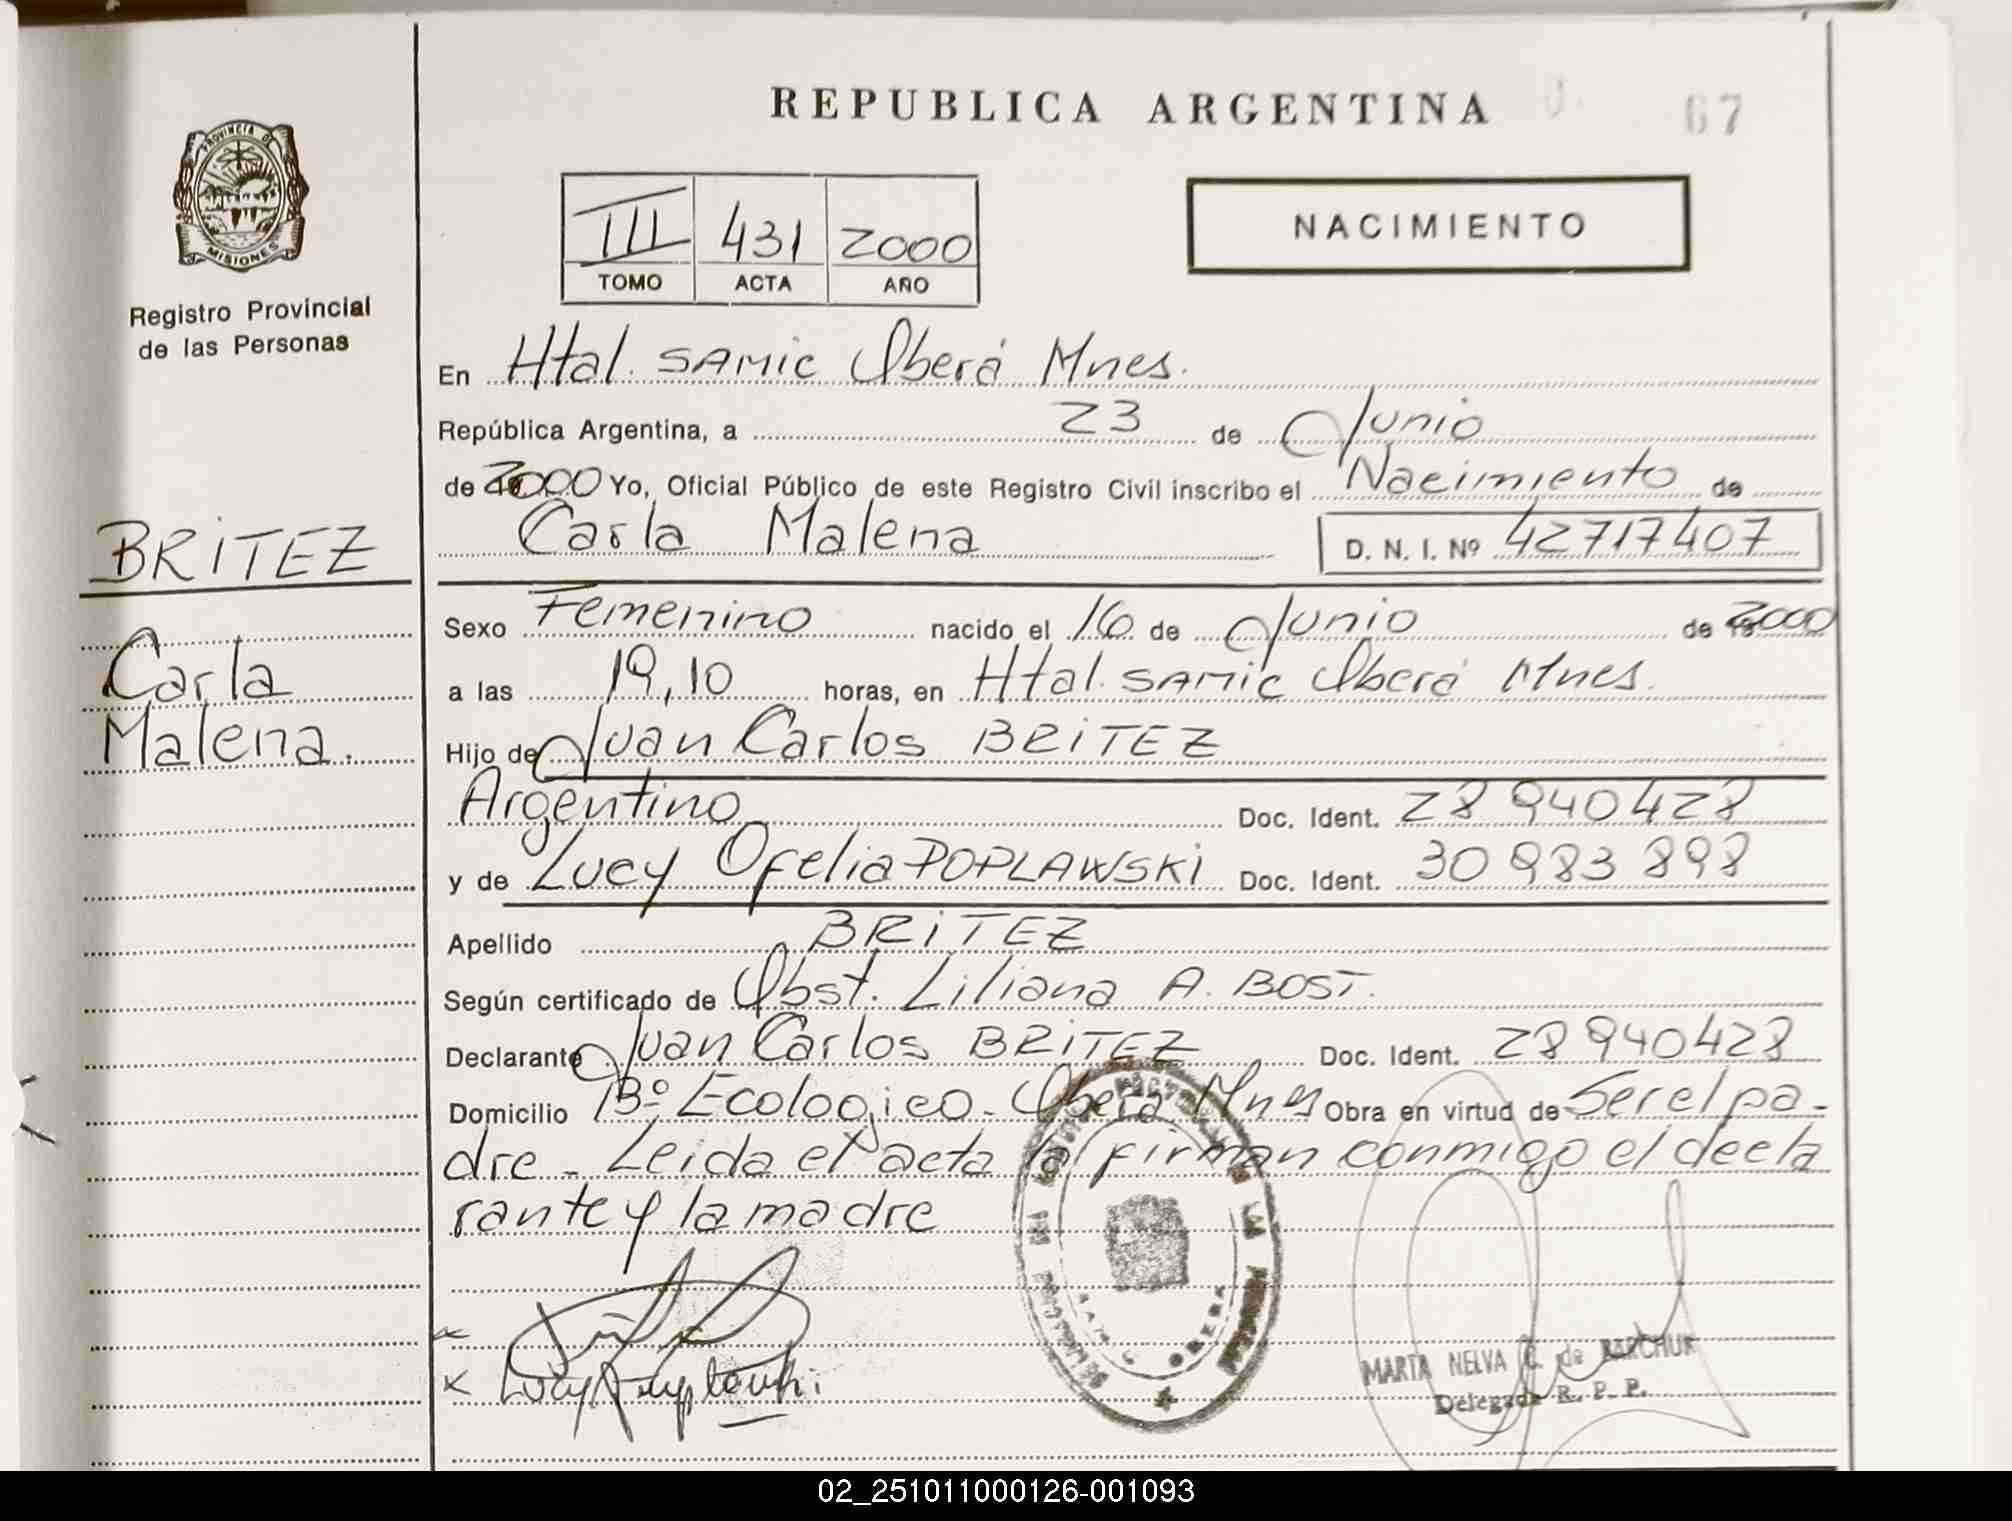 REPUBLICA ARGENTINA
67
PROVINCIA DE
MISIONES
Registro Provincial
de las Personas
III 431 2000
TOMO ACTA AÑO
NACIMIENTO
En Htal. SAMIC Oberá Mnes.
República Argentina, a 23 de Junio
de 2000 Yo, Oficial Público de este Registro Civil inscribo el Nacimiento de
Carla Malena D. N. I. Nº 42717407
BRITEZ
Carla
Malena.
Sexo Femenino nacido el 16 de Junio de 2000
a las 19,10 horas, en Htal. SAMIC Oberá Mnes.
Hijo de Juan Carlos BRITEZ
Argentino Doc. Ident. 28 940 428
y de Lucy Ofelia POPLAWSKI Doc. Ident. 30 983 898
Apellido BRITEZ
Según certificado de Obst. Liliana A. BOST.
Declarante Juan Carlos BRITEZ Doc. Ident. 28 940428
Domicilio Bº Ecologico - Oberá Mnes Obra en virtud de Ser el pa-
dre - Leida el acta la firman conmigo el decla
rante y la madre
OBERA
MARTA NELVA de
Delegada R. P. P.
02_251011000126-001093